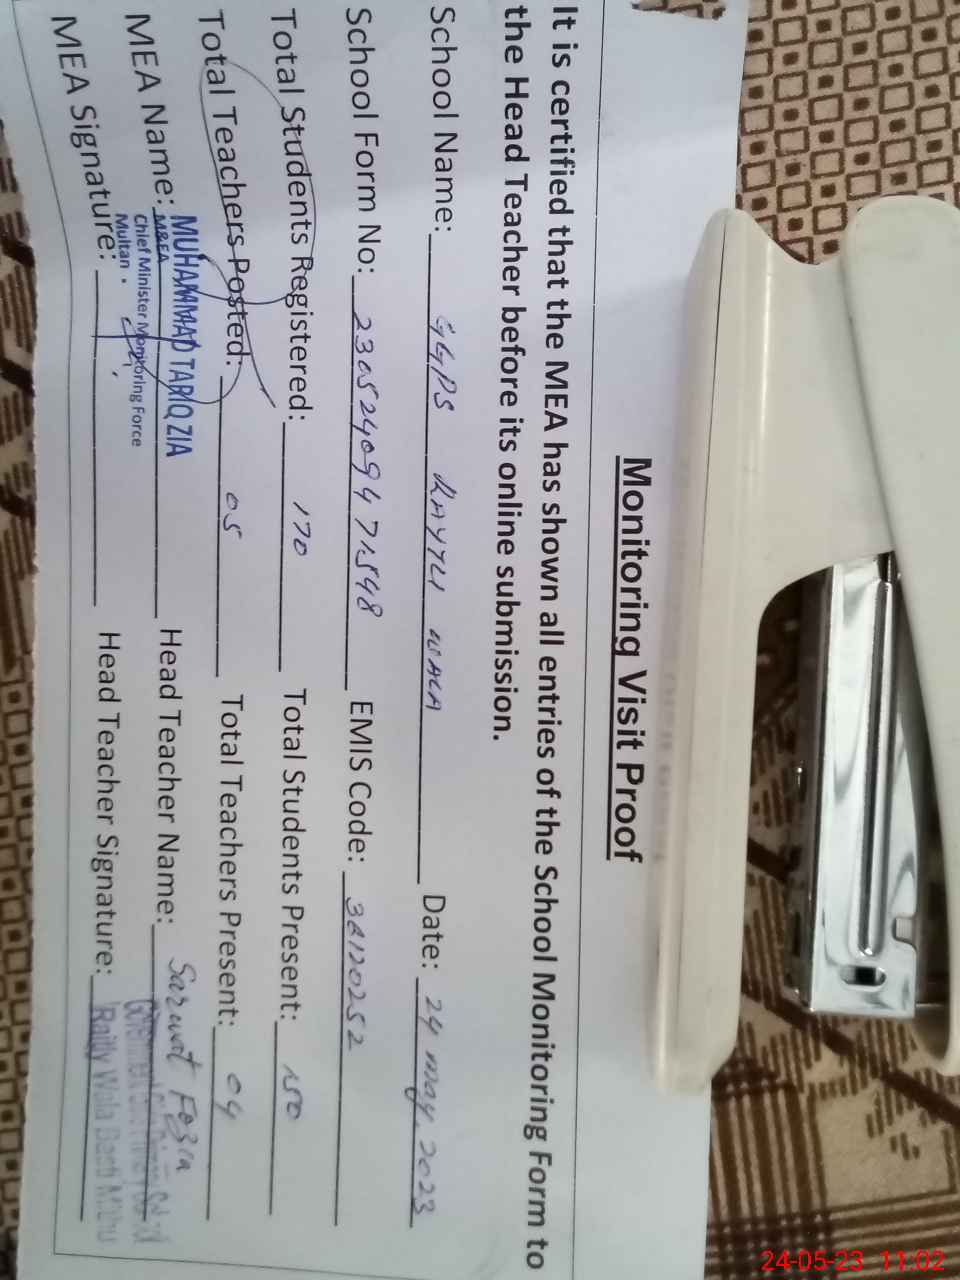 Monitoring Visit Proof
It is certified that the MEA has shown all entries of the School Monitoring Form to
the Head Teacher before its online submission.
School Name: GGPS RAYTU WALA Date: 24 may, 2023
School Form No: 230524094 71548 EMIS Code: 36120252
Total Students Registered: 170 Total Students Present: 150
Total Teachers Posted: 05 Total Teachers Present: 04
MEA Name: MUHAMMAD TARIQ ZIA Head Teacher Name: Sarwat Fozia
M&EA
Chief Minister Monitoring Force
Multan.
MEA Signature: Head Teacher Signature:
Wala Basti
24-05-23 11:02